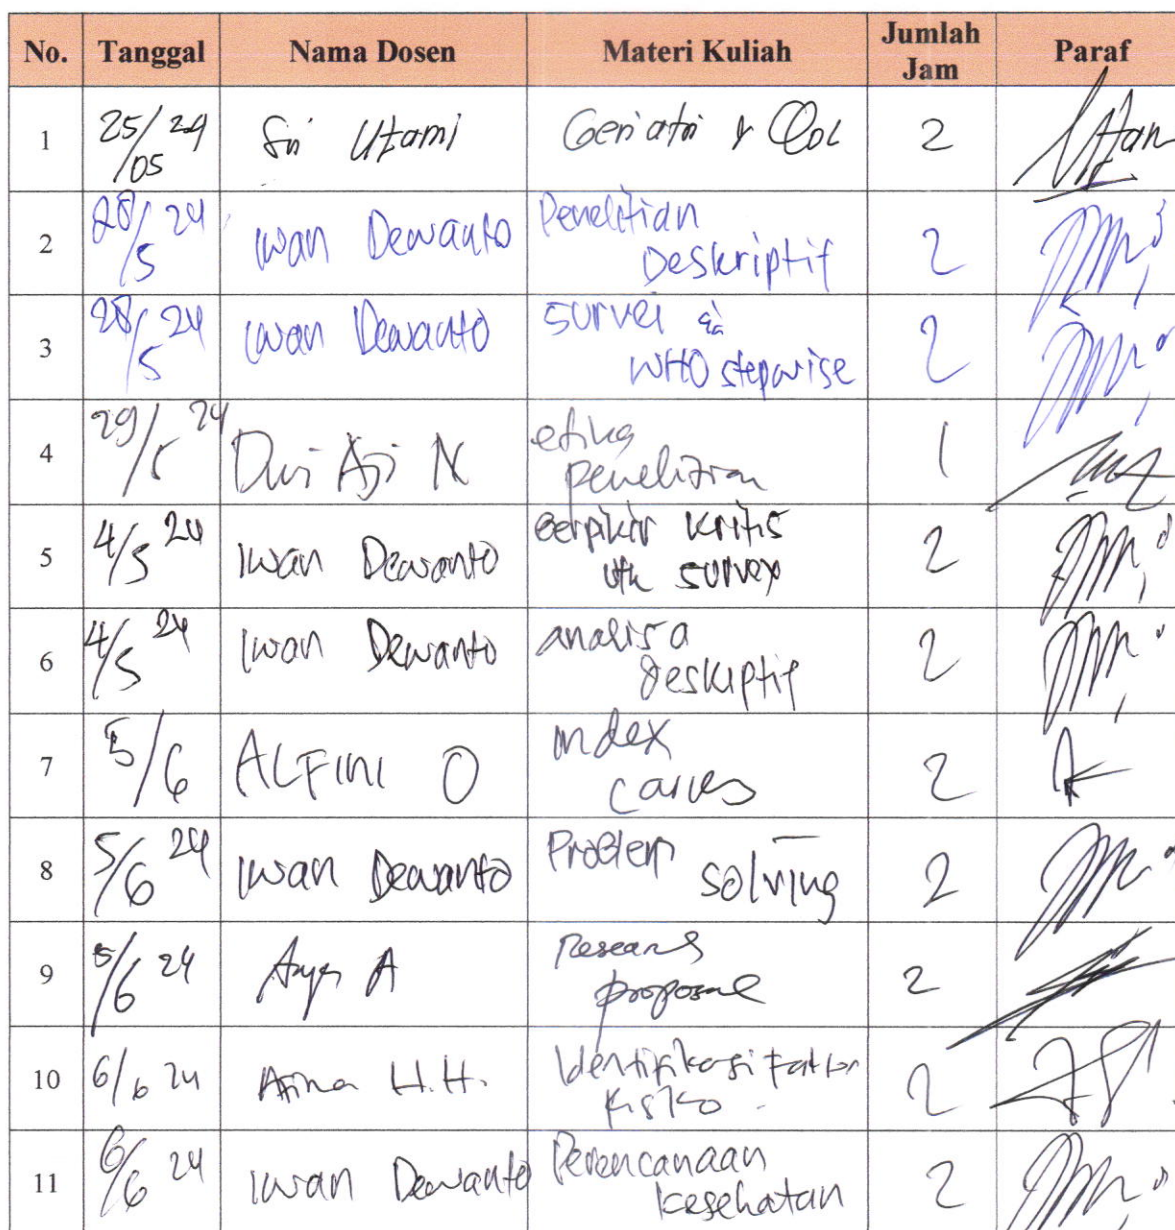 No. Tanggal Nama Dosen Materi Kuliah Jumlah Jam Paraf
1 25/05 24 Sri Utami Geriatri & QoL 2
2 28/5 24 Iwan Dewanto Penelitian Deskriptif 2
3 28/5 24 Iwan Dewanto survei & WHO stepwise 2
4 29/5 24 Dwi Aji N etika penelitian 1
5 4/5 24 Iwan Dewanto Berpikir kritis utk survey 2
6 4/5 24 Iwan Dewanto analisa deskriptif 2
7 5/6 ALFINI O index caries 2
8 5/6 24 Iwan Dewanto Problem solving 2
9 5/6 24 A proposal 2
10 6/6 24 H.H. Identifikasi Faktor Risiko 2
11 6/6 24 Iwan Dewanto Perencanaan kesehatan 2